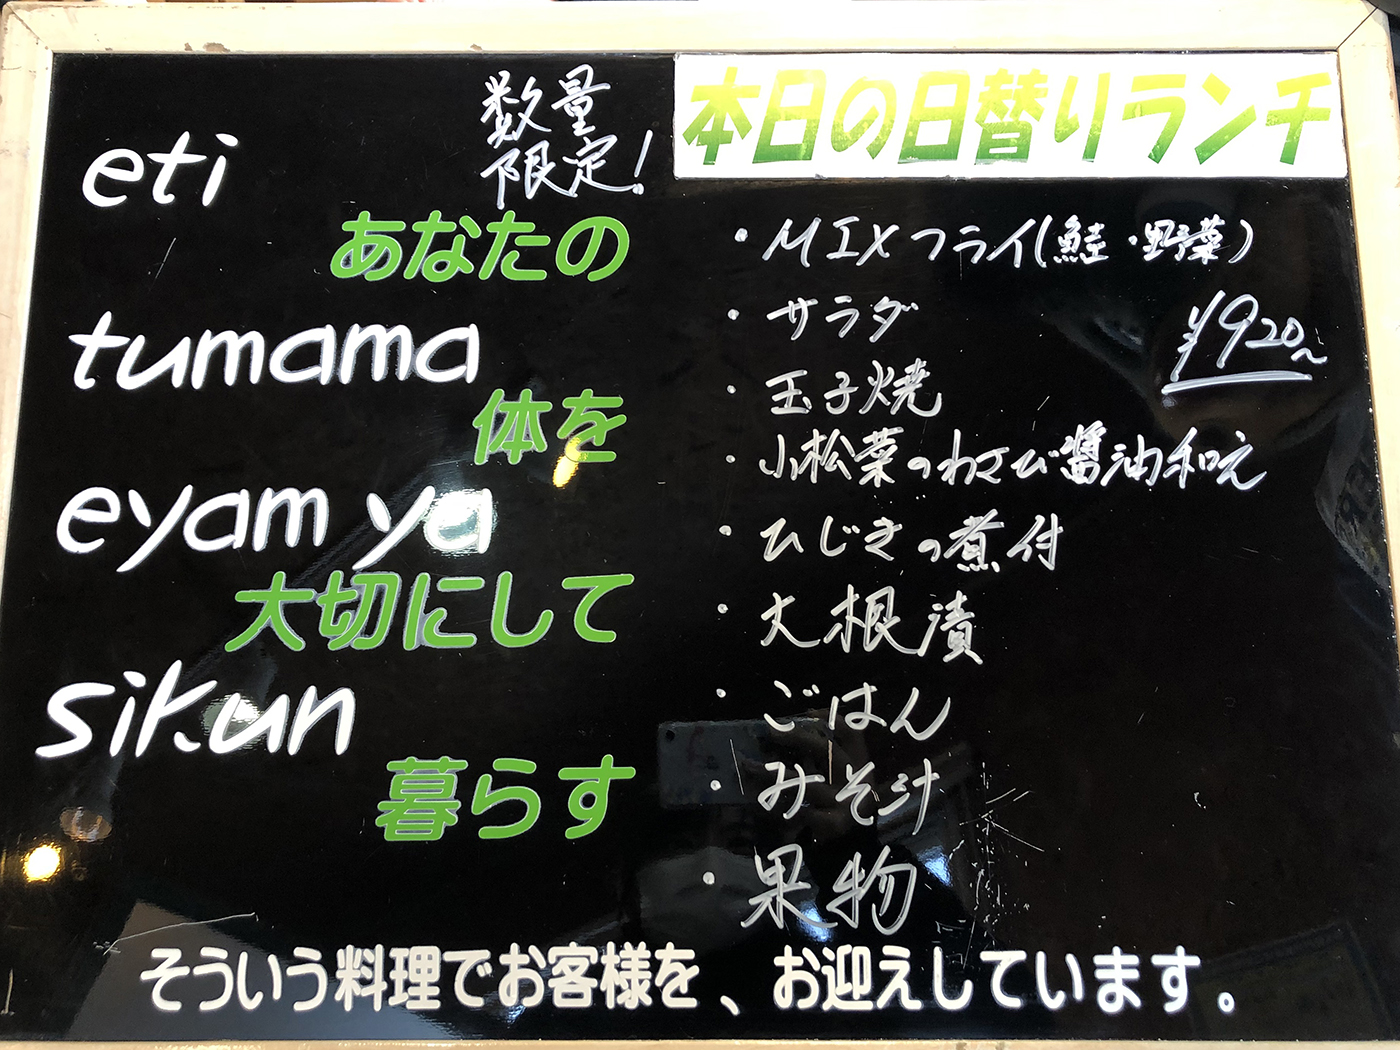 eti
あなたの
tumama
体を
eyam ya
大切にして
sikun
暮らす
数量
限定!
本日の日替りランチ
・MIXフライ(鮭・野菜)
・サラダ
¥920~
・玉子焼
・小松菜のわさび醤油和え
・ひじきの煮付
・大根漬
・ごはん
・みそ汁
・果物
そういう料理でお客様を、お迎えしています。